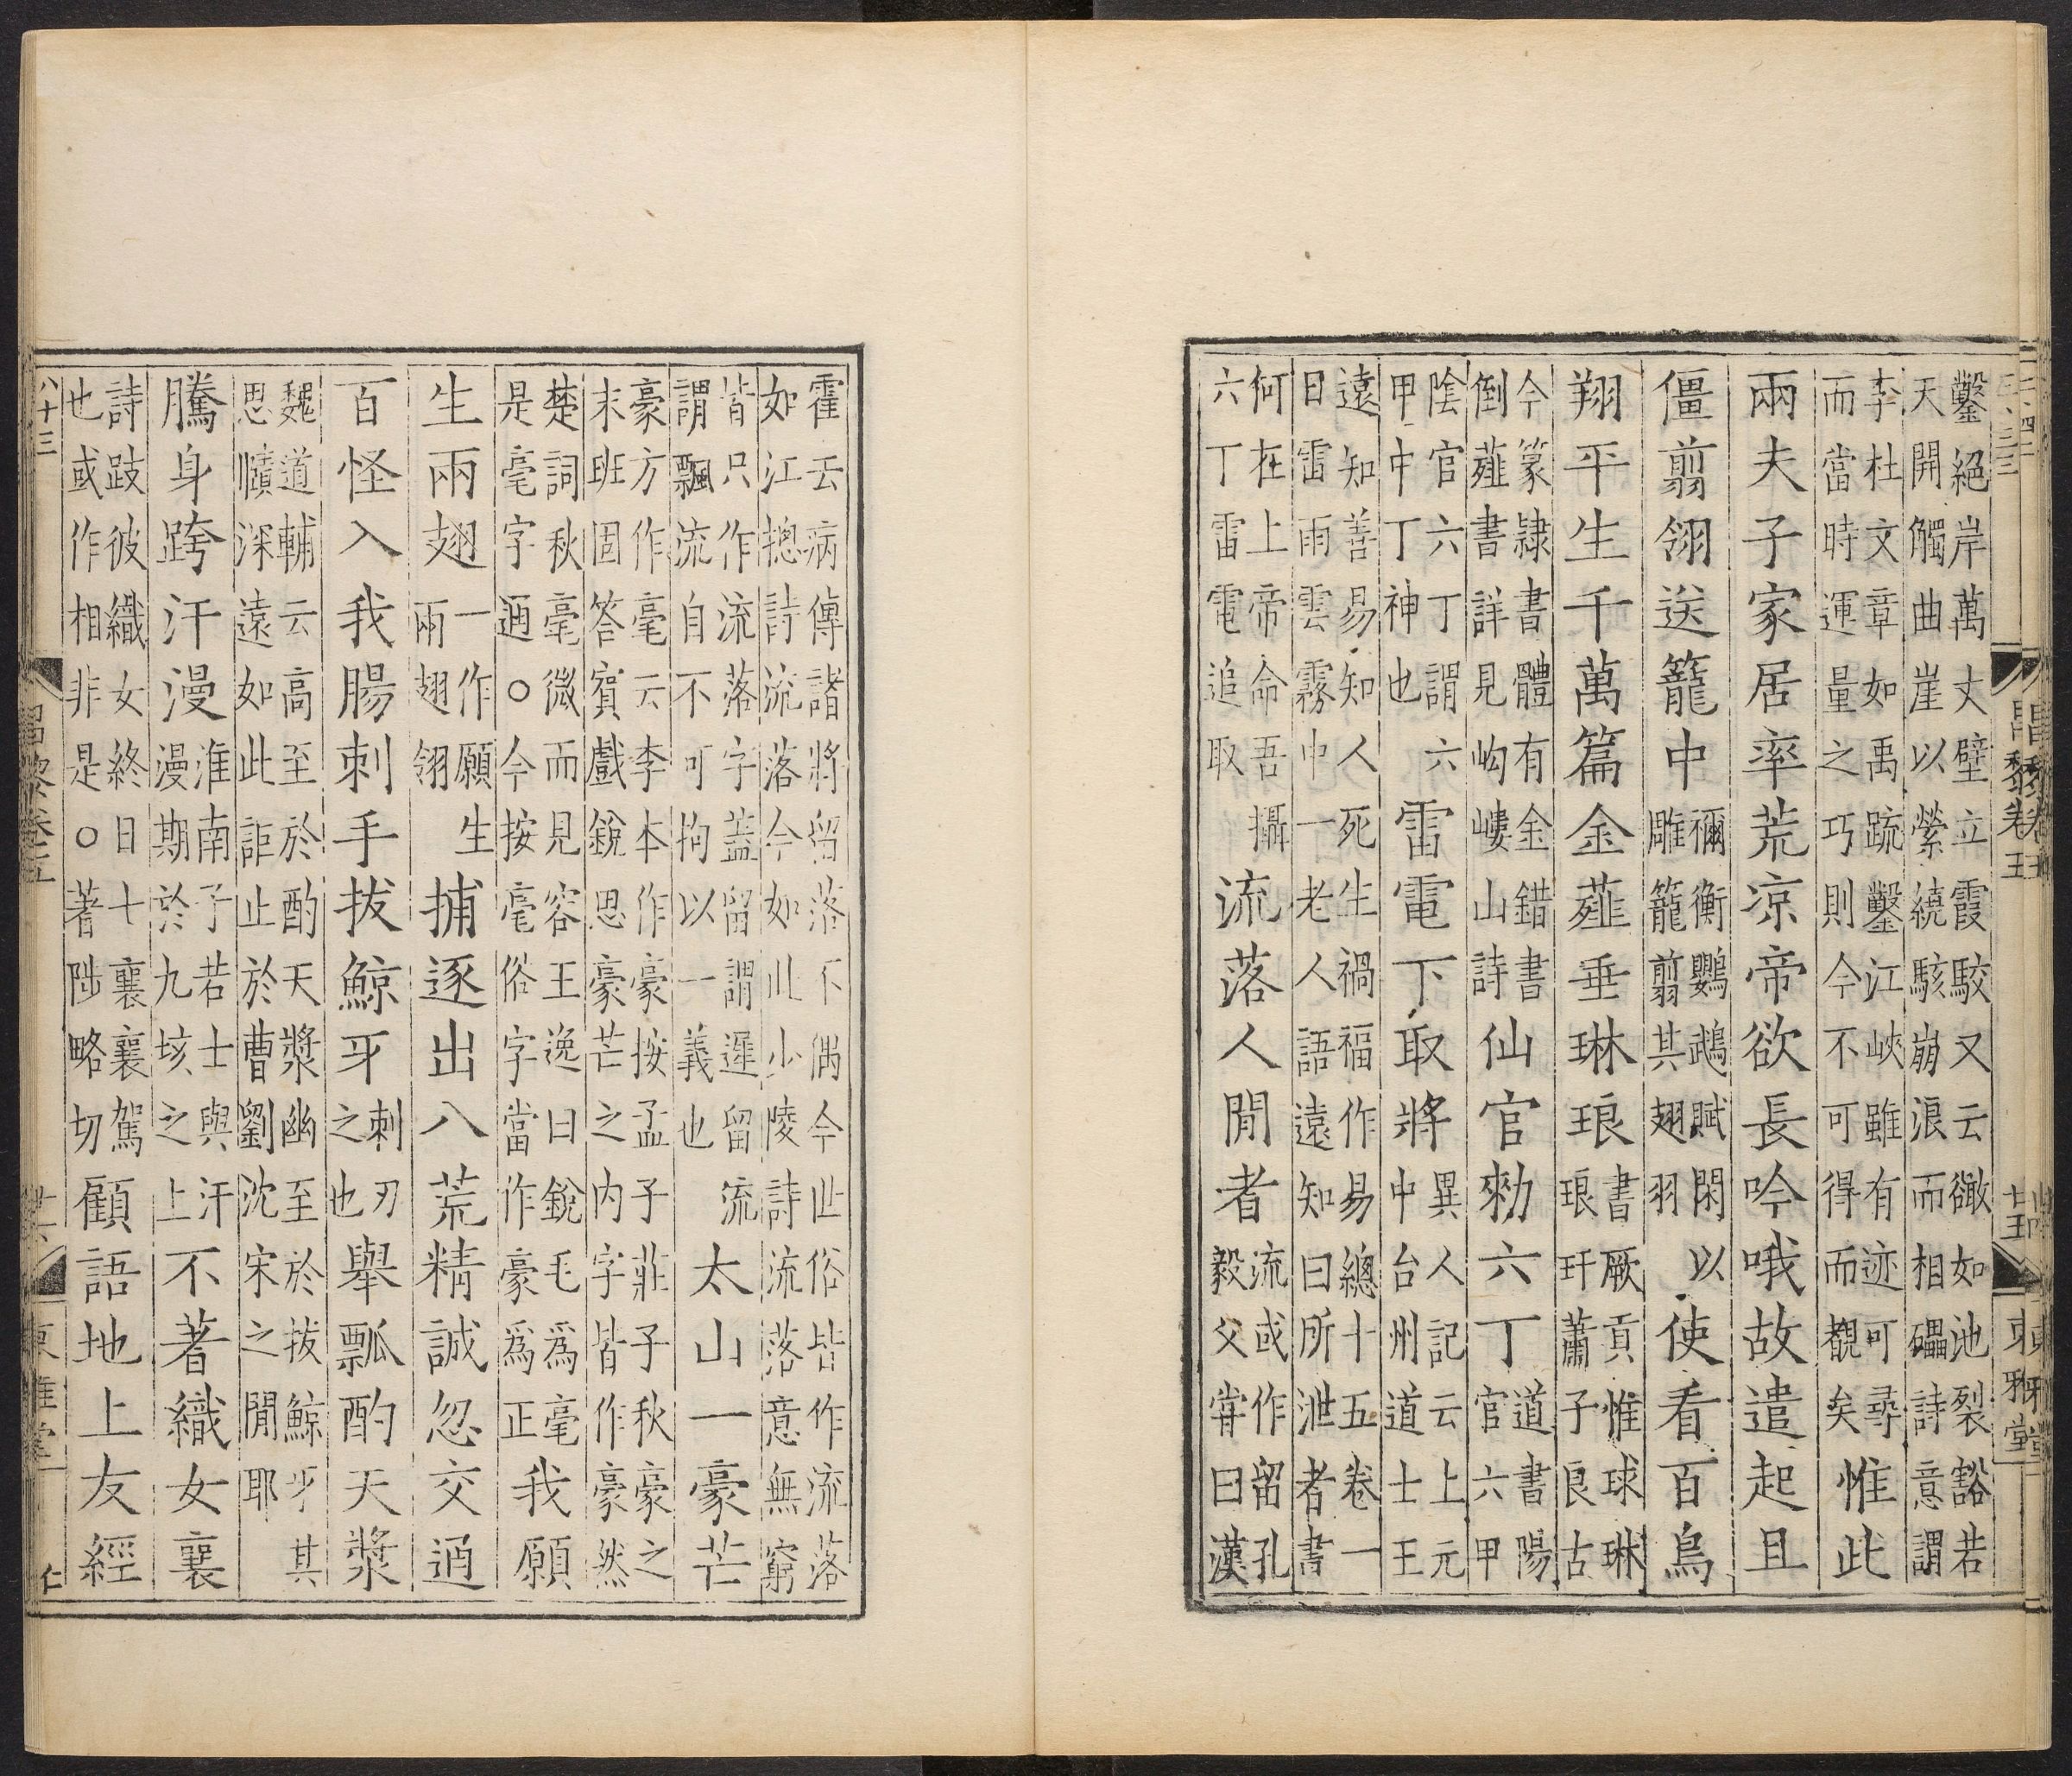 鑿絕岸萬丈壁立霞駮又云𣣈如池裂豁若
天開觸曲崖以縈繞駭崩浪而相礧詩意謂
李杜文章如禹䟽鑿江峽雖有迹可尋
而當時運量之巧則今不可得而覩矣
惟此
兩夫子家居率荒凉帝欲長吟哦故遣起且
僵翦翎送籠中
禰衡鸚鵡賦閉以
雕籠翦其翅羽
使看百鳥
翔平生千萬篇金薤垂琳琅
書厥貢惟球琳
琅玕蕭子良古
今篆隷書體有金錯書
倒薤書詳見岣嶁山詩
仙官勑六丁
道書陽
官六甲
陰官六丁謂六
甲中丁神也
雷電下取將
異人記云上元
中台州道士王
遠知善易知人死生禍福作易總十五卷一
日雷雨雲霧中一老人語遠知曰所泄者書
何在上帝命吾攝
六丁雷電追取
流落人閒者
流或作留孔
毅父甞曰漢
昌黎卷五
廿五
東雅堂
霍云病傳諸將留落不偶今世俗皆作流落
如江摠詩流落今如此少陵詩流落意無窮
皆只作流落字蓋留謂遲留流
謂飄流自不可拘以一義也
太山一豪芒
豪方作作毫云李本作豪按孟子莊子秋豪之
末班固答賓戲銳思豪芒之内字皆作豪然
楚詞秋毫微而見容王逸曰銳毛爲毫
是毫字通○今按毫俗字當作豪爲正
我願
生兩翅
一作願生
兩翅翎
捕逐出八荒精誠忽交通
百怪入我腸刺手拔鯨牙
刺刃
之也
舉瓢酌天漿
魏道輔云高至於酌天漿幽至於拔鯨牙其
思賾深遠如此詎止於曹劉沈宋之閒耶
騰身跨汗漫
淮南子若士與汗
漫期於九垓之上
不著織女襄
詩跂彼織女終日七襄襄駕
也或作相非是○著陟略切
顧語地上友經
八十三
昌黎卷五
東雅堂